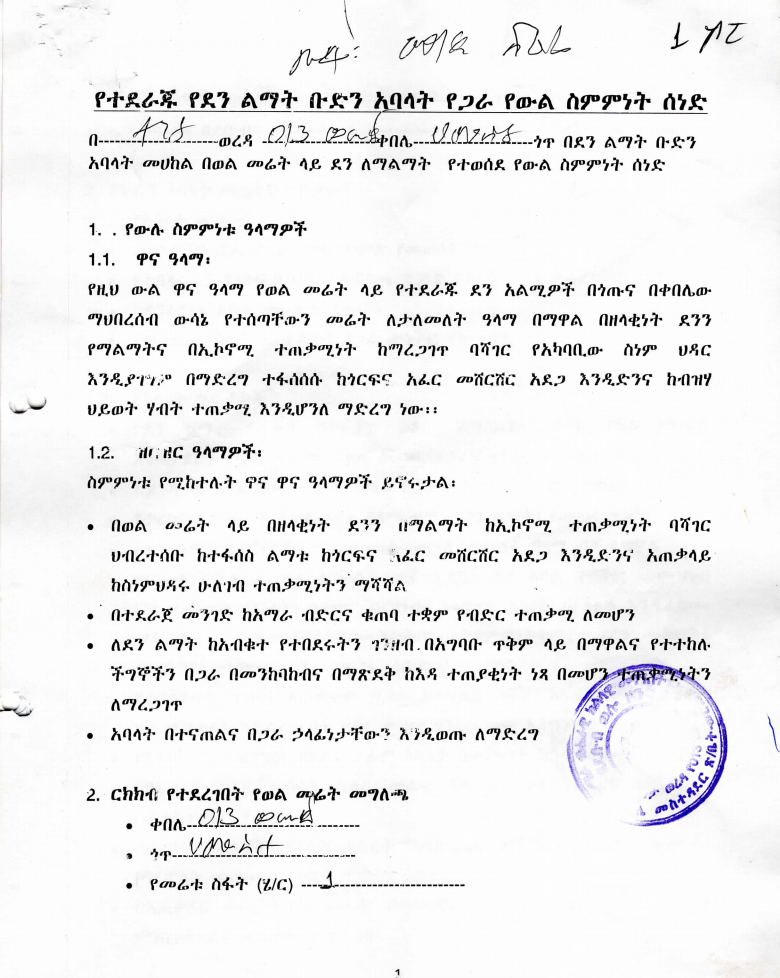 የተደራጁ የደን ልማት ቡድን አባላት የጋራ የውል ስምምነት ሰነድ
በ------------------ወረዳ ------------------ቀበሌ------------------ጎጥ በደን ልማት ቡድን
አባላት መሀከል በወል መሬት ላይ ደን ለማልማት የተወሰደ የውል ስምምነት ሰነድ
1. . የውሉ ስምምነቱ ዓላማዎች
1.1. ዋና ዓላማ፡
የዚህ ውል ዋና ዓላማ የወል መሬት ላይ የተደራጁ ደን አልሚዎች በጎጡና በቀበሌው
ማህበረሰብ ውሳኔ የተሰጣቸውን መሬት ለታለመለት ዓላማ በማዋል በዘላቂነት ደንን
የማልማትና በኢኮኖሚ ተጠቃሚነት ከማረጋገጥ ባሻገር የአካባቢው ስነም ህዳር
በማድረግ ተፋሰሰሱ ከጎርፍና አፈር መሸርሸር አደጋ እንዲድንና ከብዝሃ
ህይወት ሃብት ተጠቃሚ እንዲሆንለ ማድረግ ነው፡፡
1.2. ዝርዝር ዓላማዎች፡
ስምምነቱ የሚከተሉት ዋና ዋና ዓላማዎች ይኖሩታል፡
• በወል መሬት ላይ በዘላቂነት ደንን በማልማት ከኢኮኖሚ ተጠቃሚነት ባሻገር
ህብረተሰቡ ከተፋሰስ ልማቱ ከጎርፍና አፈር መሸርሸር አደጋ እንዲድንና አጠቃላይ
ከስነምህዳሩ ሁለገብ ተጠቃሚነትን ማሻሻል
• በተደራጀ መንገድ ከአማራ ብድርና ቁጠባ ተቋም የብድር ተጠቃሚ ለመሆን
• ለደን ልማት ከአብቁተ የተበደሩትን ገንዘብ በአግባቡ ጥቅም ላይ በማዋልና የተተከሉ
ችግኞችን በጋራ በመንከባከብና በማጽደቅ ከእዳ ተጠያቂነት ነጻ በመሆን ተጠቃሚነትን
ለማረጋገጥ
• አባላት በተናጠልና በጋራ ኃላፊነታቸውን እንዲወጡ ለማድረግ
2. ርክክብ የተደረገበት የወል መሬት መግለጫ
• ቀበሌ------------------
• ጎጥ------------------
• የመሬቱ ስፋት (ሄ/ር) ----1--------------------
1